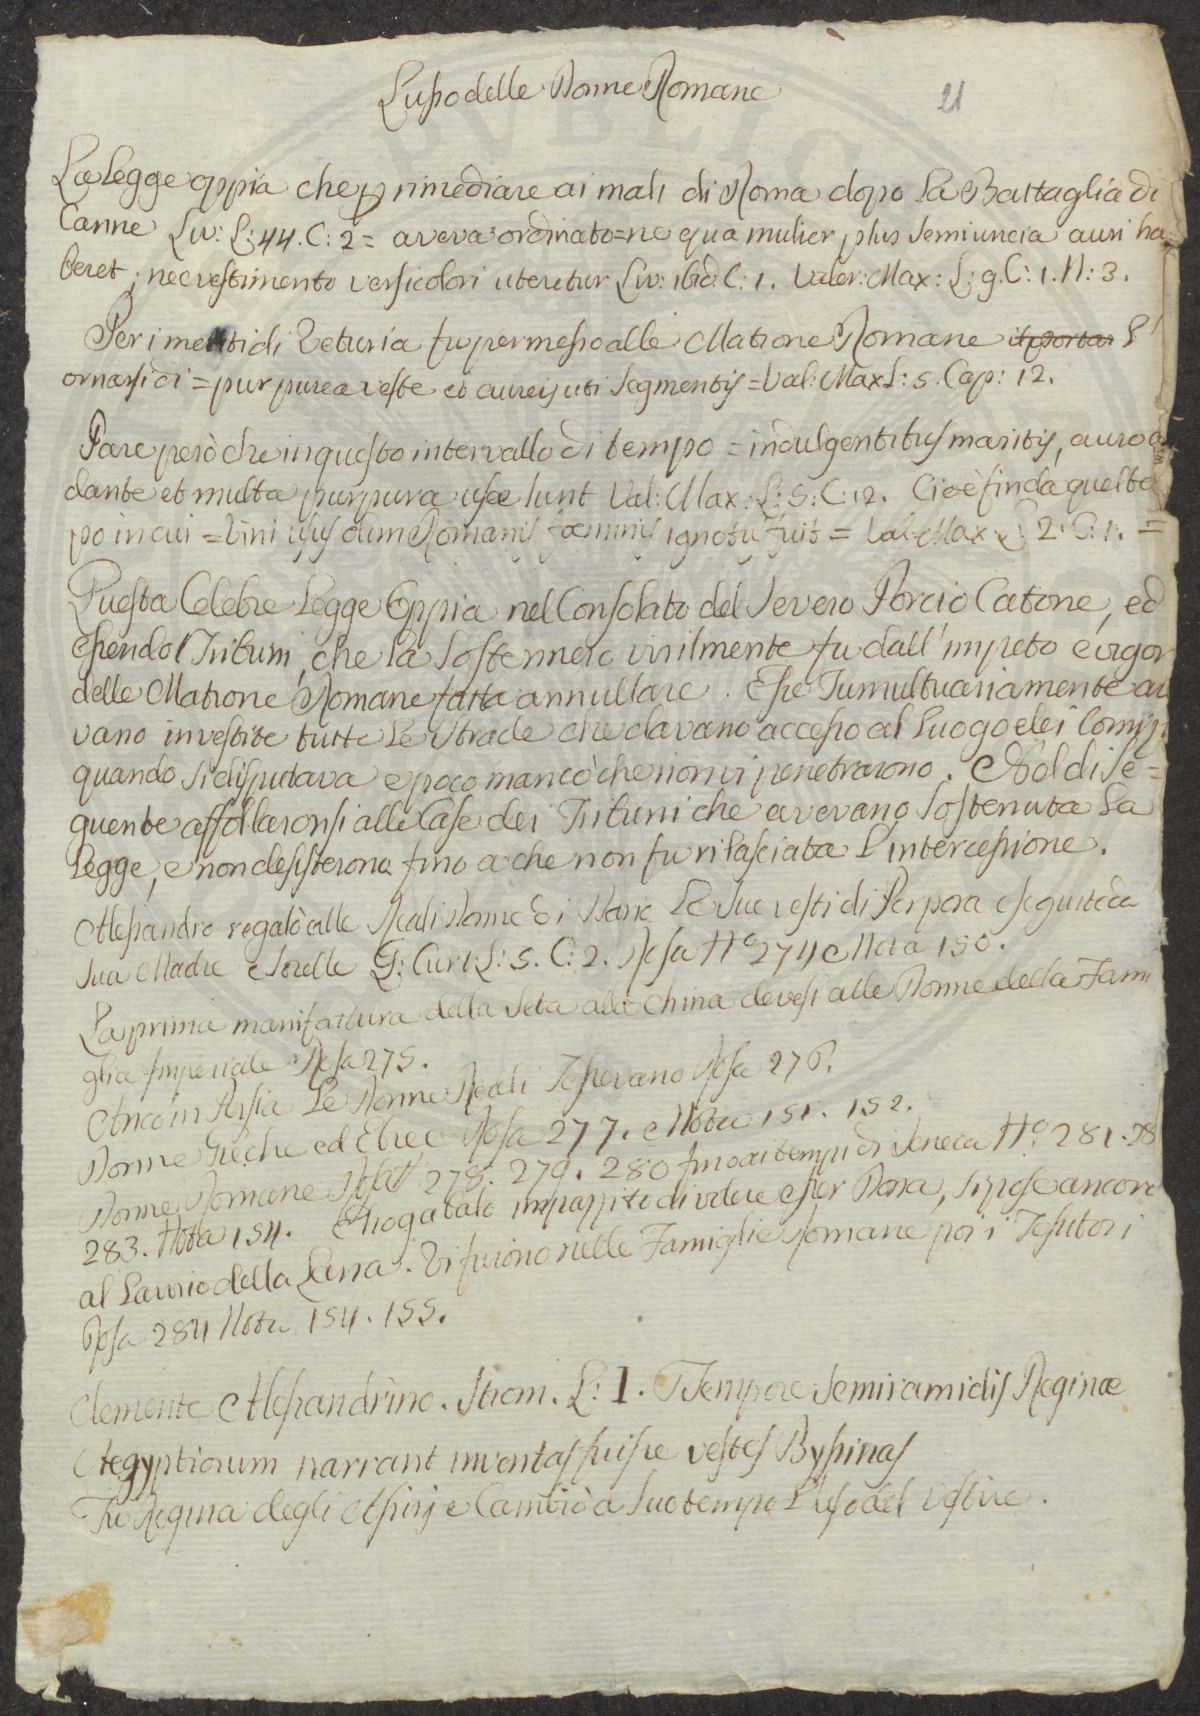 Lusso delle Donne Romane
21
La Legge oppia che p rimediare ai mali di Roma dopo la Battaglia di
Canne Liv: L: 44. C: 2 = aveva ordinato = ne qua mulier plus semiuncia auri ha
beret; nec vestimento versicolori uteretur Liv: ibid: C: 1. Valer: Max: L: 9. C: 1. N: 3.
Per i meriti di Veturia fu permesso alle Matrone Romane l'
ornarsi di = purpurea veste et aureis uti segmentis = Val: Max L: 5. Cap: 12.
Pare però che in questo intervallo di tempo = indulgentibus maritis, auro a
dante et multa purpura usæ sunt Val: Max: L: 5: C: 12. Cioè fin da questo
po in cui = Vini usus dum Romanis fæminis ignotus fuit = Val. Max. L: 2. C: 1. =
Questa Celebre Legge Oppia nel Consolato del Severo Porcio Catone, ed
essendo i Tribuni, che la sostennero virilmente fu dall'impeto e vigor
delle Matrone Romane fatta annullare. Esse Tumultuariamente av
vano investite tutte le strade che davano accesso al Luogo dei Comizi
quando si disputava e poco mancò che non vi penetrarono. Nel di se =
quente affollaronsi alle Case dei Tribuni che avevano sostenuta la
Legge, e non desisterono fino a che non fu rilasciata l'intercessione.
Alessandro regalò alle Reali Donne di Dario le sue vesti di Porpora eseguite da
sua Madre e sorelle Q: Curt: L: 5. C: 2. Rosa N° 274 e Nota 150.
La prima manifattura della seta alla China devesi alle Donne della Fami
glia Imperiale Rosa 275.
Anco in Persia le Donne Reali Tessevano Rosa 276.
Donne Greche ed Ebree Rosa 277. e Nota 151. 152.
Donne Romane Rosa 278. 279. 280 fino ai tempi di Seneca N° 281. 28
283. Nota 154. Eliogabalo impazzito di volere esser Donna, si pose ancora
al Lavorio della Lana. Vi furono nelle Famiglie Romane poi i Tessitori
Rosa 284 Nota 154. 155.
Clemente Alessandrino. Strom. L: 1. Tempore Semiramidis Reginæ
Aegyptiorum narrant inventas fuisse vestes Byssinas
Fu Regina degli Assirj e Cambiò a suo tempo l'uso del vestire.